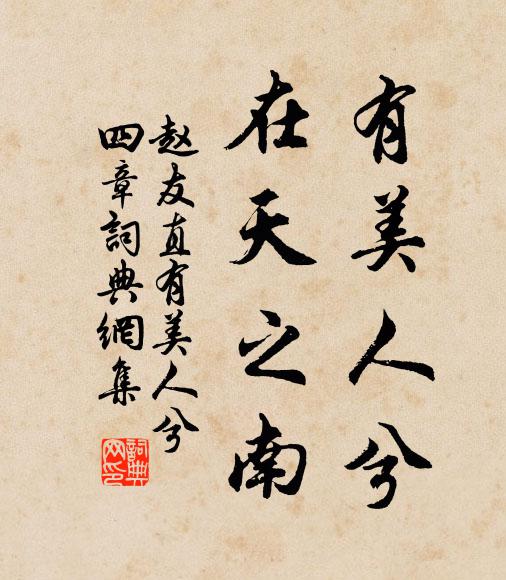 有美人兮
在天之南
赵友直有美人兮
四章詞典網集
詞典
网印